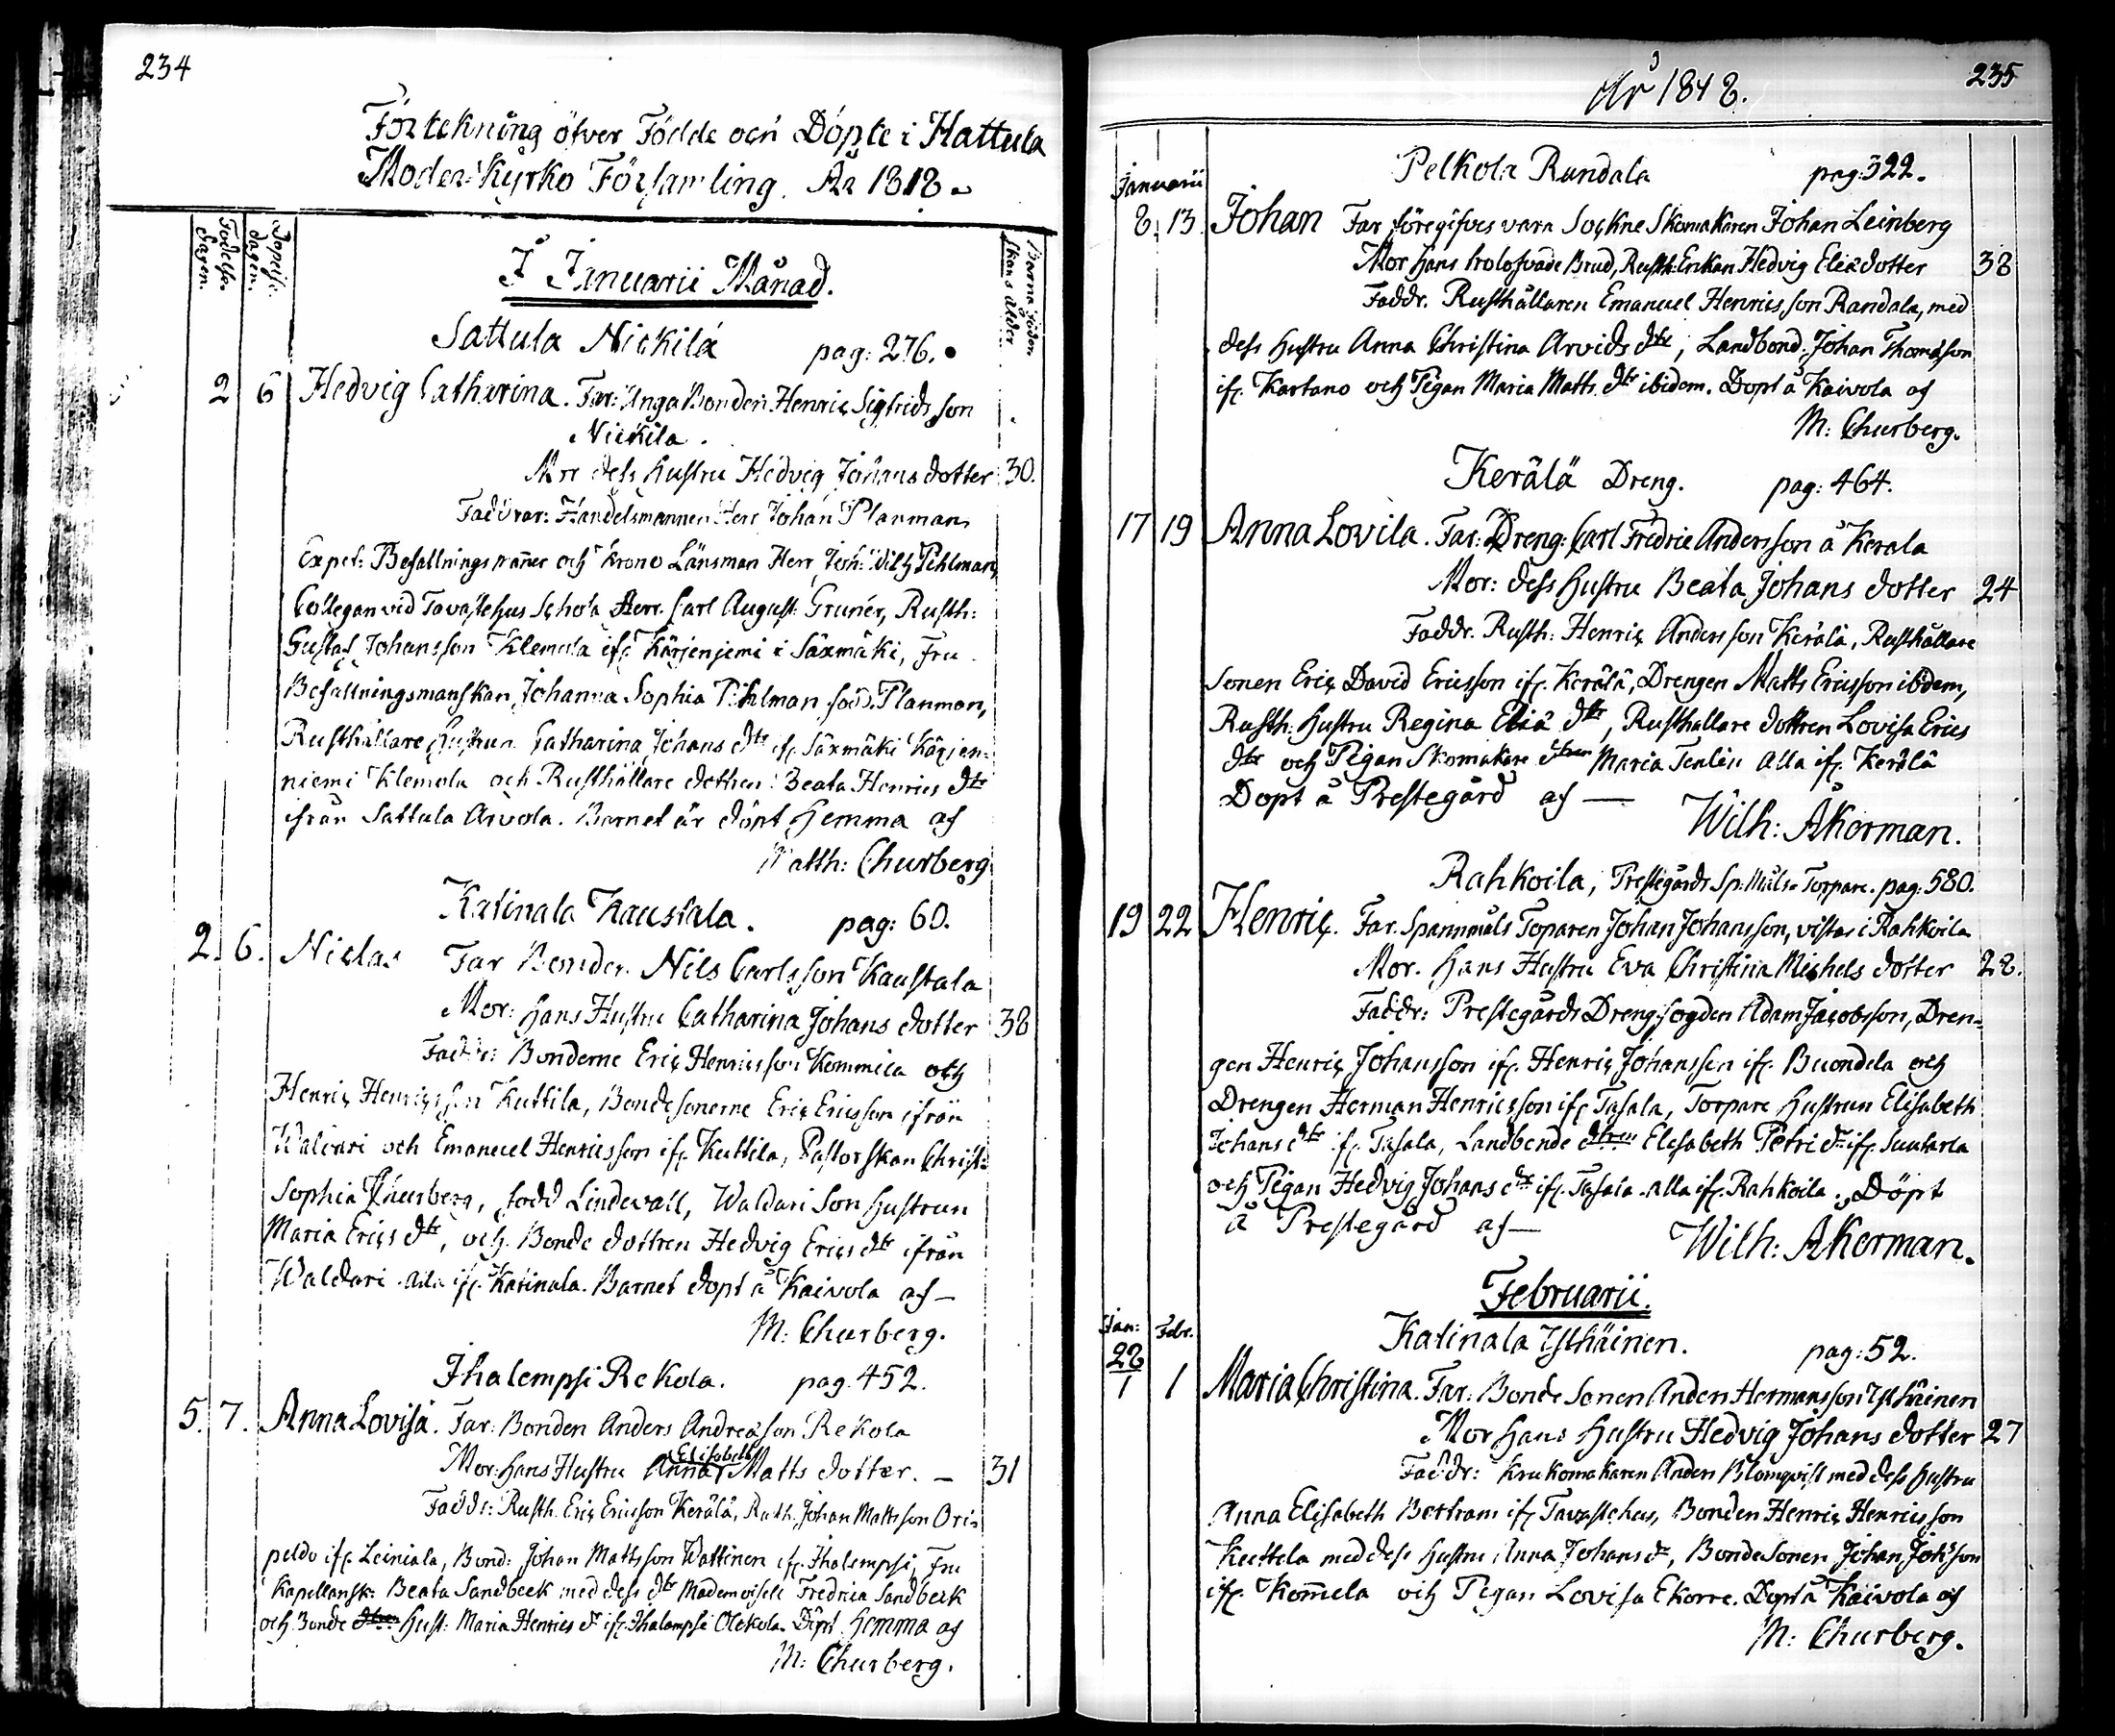 234
Förtekning öfver Födde och Döpte i Hattula
Moder-Kyrko Församling. År 1818.
Födelse dagen.
Döpelse dagen.
Barna föder skans ålder
I Januarii Månad.
Sattula Nickilä pag: 276.
2 6 Hedvig Catharina. Far: Unga Bonden Henric Sigfrids son
Nickila.
Mor dess Hustru Hedvig Johans dotter 30.
Faddrar: Handelsmannen Herr Johan Planman
Exped: Befallningsmannen och Krono Länsman Herr Joh: Pihlman,
Collegan vid Tavastehus Schola Herr. Carl August: Gruner, Rusth:
Gustaf Johansson Klemola if. Kärjenjemi i Säxmäki, Fru
Befallningsmanskan Johanna Sophia Pihlman född. Planman,
Rusthållare Hustrun Catharina Johans dtr if. Säxmäki Kärjen-
niemi Klemola och Rusthållare dottren: Beata Henrics dtr
ifrån Sattula Arvola. Barnet är döpt hemma af
Matth: Churberg
Katinala Kaustala. pag: 60.
2. 6. Niclas Far Bonden Nils Carlsson Kaustala
Mor: Hans Hustru Catharina Johans dotter 38
Faddr: Bönderne Eric Henricsson Kommila och
Henric Henricsson Kuttila, Bondesönerne Eric Ericsson ifrån
Waldari och Emanuel Henricsson if. Kuttila, Pastorskan Christ:
Sophia Churberg, född Lindevall, Waldari Son hustrun
Maria Erics dtr, och Bonde dottren Hedvig Erics dtr ifrån
Waldari alla if. Katinala. Barnet döpt å Kaivola af —
M: Churberg.
Ihalempsi Rekola. pag. 452.
5. 7. Anna Lovisa. Far: Bonden Anders Andreasson Rekola
Elisabeth
Mor: Hans Hustru Anna Matts dotter. — 31
Faddr: Rusth. Eric Ericsson Kerälä, Rusth. Johan Mattsson Ori-
peldo if. Leiniala, Bond: Johan Mattsson Wattinen if. Ihalempsi, Fru
Kapellansk: Beata Sandbeck med dess dtr Mademoiselle Fredrica Sandbeck
och Bonde dtren Hust: Maria Henrics dr if. Ihalempsi Ollekola. Döpt Hemma af
M: Churberg.
235
År 1818.
Januarii
Pelkola Randala pag: 322.
8. 13. Johan Far föregifves vara Sockne Skomakaren Johan Leinberg
Mor Hans trolofvade Brud, Rusth: Enkan Hedvig Eliædotter 38
Faddr. Rusthållaren Emanuel Henricsson Randala, med
dess Hustru Anna Christina Arvids dtr, Landbond. Johan Thomasson
if. Kartano och Pigan Maria Matts dtr ibidem. Döpt å Kaivola af
M: Churberg.
Kerälä Dreng. pag: 464.
17 19 Anna Lovisa. Far: Dreng: Carl Fredric Andersson å Kerala
Mor: dess Hustru Beata Johans dotter 24
Faddr. Rusth: Henric Andersson Kerälä, Rusthållare
Sonen Eric David Ericsson if. Kerälä, Drengen Matts Ericsson ibidem,
Rusth: Hustru Regina Eliæ dtr, Rusthållare dottren Lovisa Erics
dtr och Pigan Skomakare dtren Maria Tenlén Alla if. Kerälä
Döpt å Prestegård af — Wilh: Åkerman.
Rahkoila, Prestegårds Sp: Måls- Torpare. pag: 580.
19 22 Henric. Far. Spannmåls Toparen Johan Johansson, vistas i Rahkoila
Mor. Hans Hustru Eva Christina Michels dotter 28.
Faddr: Prestegårds Drengfogden Adam Jacobsson, Dren-
gen Henric Johansson if. Henric Johansson if. Buondela och
Drengen Herman Henricsson if. Tasala, Torpare Hustrun Elisabeth
Johans dtr if. Tasala, Landbonde dtren Elisabeth Petri dr if. Suutarla
och Pigan Hedvig Johans dtr if. Tasala. Alla if. Rahkoila. Döpt
å Prestegård af — Wilh: Åkerman.
Februarii.
Jan: Febr. Katinala Isthäinen. pag: 52.
28
1 1 Maria Christina. Far: Bonde Sonen Anders Hermansson Isthäinen
Mor Hans Hustru Hedvig Johans dotter 27
Faddr: Krukomakaren Anders Blomqvist med dess Hustru
Anna Elisabeth Bertram if. Tavastehus, Bonden Henric Henricsson
Kuttela med dess Hustru Anna Johans dr, Bonde Sonen Johan Johsson
if. Kom̄ela och Pigan Lovisa Ekorre. Döpt å Kaivola af
M: Churberg.